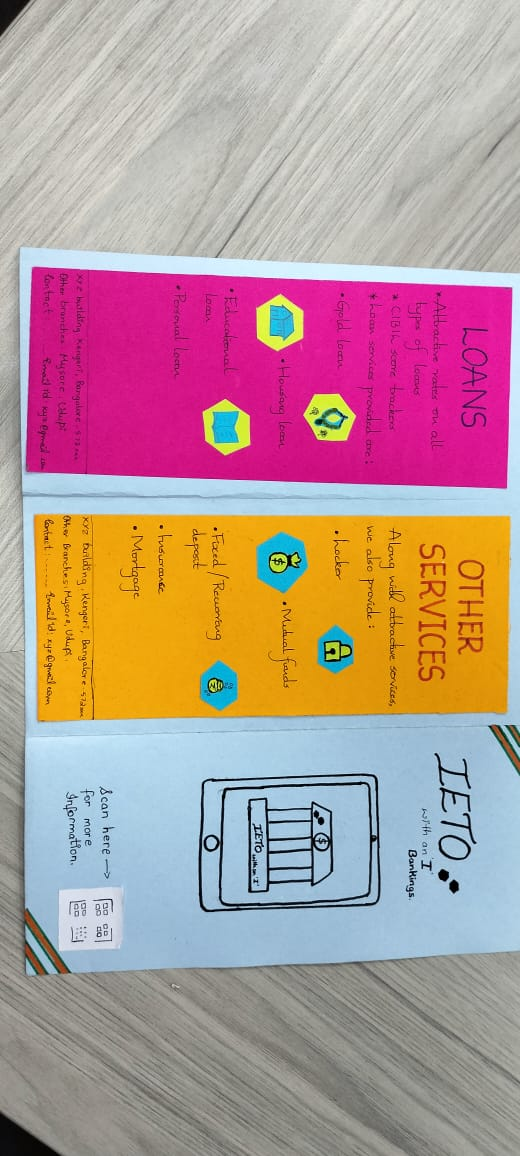 LOANS
* Attractive rates on all
types of loans
* CIBIL score trackers
* Loan services provided are:
• Gold loan
• Housing loan
• Educational
loan
• Personal loan
XYZ building, Kengeri, Bangalore - 572
Other branches: Mysore, Udupi
Contact:
Email Id: xyz@gmail.com
OTHER
SERVICES
Along with attractive services,
we also provide:
• Locker
$
• Mutual funds
• Fixed / Recurring
deposit
• Insurance
• Mortgage
XYZ building, Kengeri, Bangalore - 572
Other Branches: Mysore, Udupi.
Contact: ......
Email id: xyz@gmail.com
IETO
with an 'I'
Bankings.
$
IETO
with an 'I'
Scan here →
for more
Information.